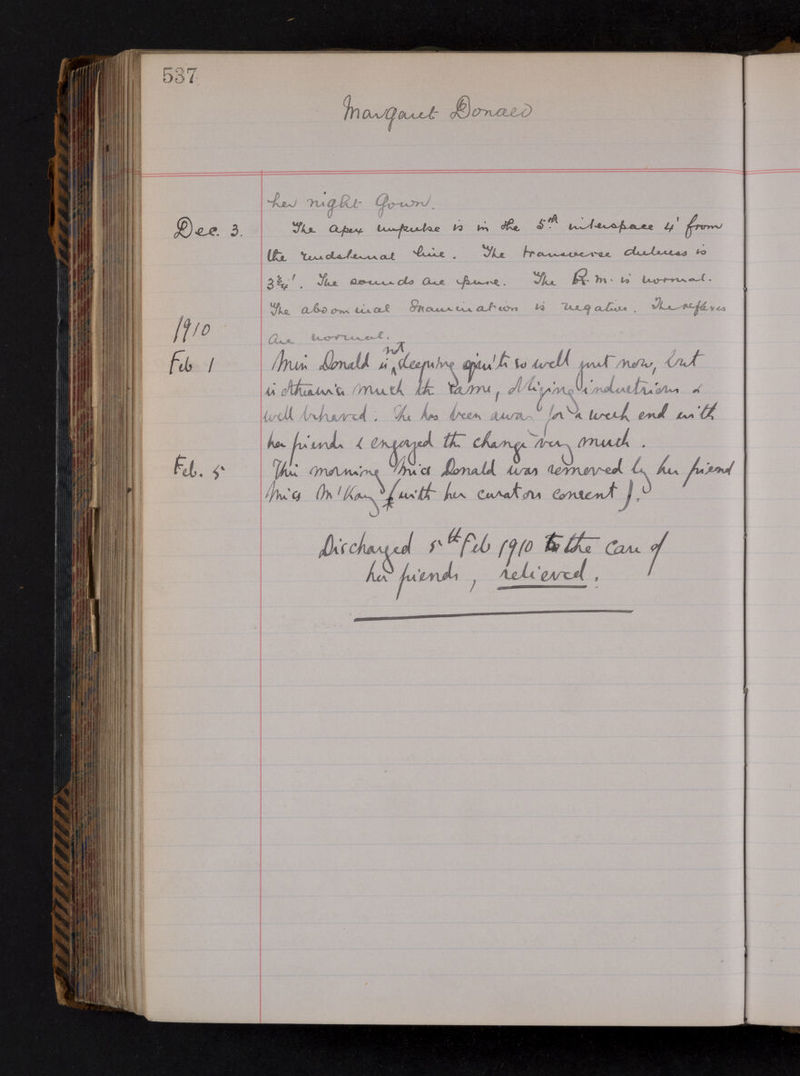 537
Margaret Donald
her night gown.
Dec. 3. The apex impulse is in the 5th interspace 4" from
the midsternal line. The transverse dulness is
3¾". The sounds are pure. The R.M. is normal.
The abdominal Examination is negative. The reflexes
1910 are normal.
Feb 1 Miss Donald is not sleeping quite so well just now, but
is otherwise much the same, obliging industrious &
well behaved. She has been away for a week end with
her friends & enjoyed the change very much.
Feb. 5 This morning Miss Donald was removed by her friend
Miss McKay (with her curators consent).
Discharged 5th Feb 1910 to the care of
her friends, relieved.